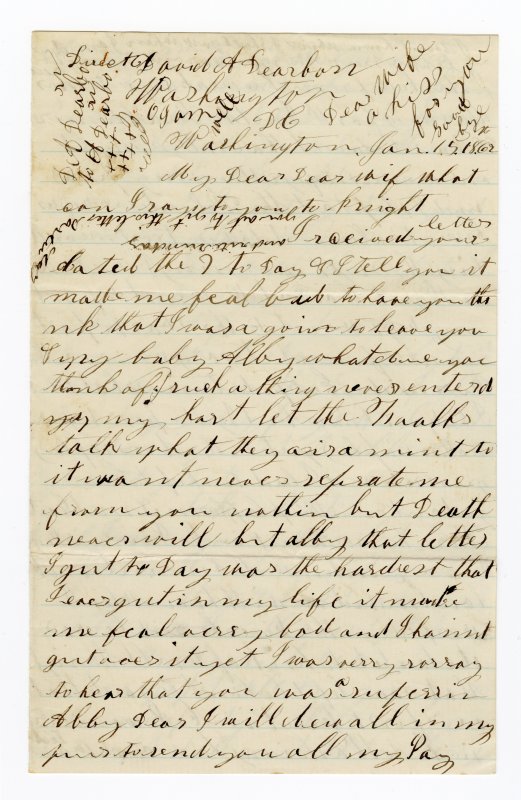 Direct to David A Dearborn
Washington
D C
Dear Wife
a kiss
for you
good
bye
Washington Jan. 15, 1862
My Dear Dear wif what
can I say to you to knight
I received your letter
dated the 7 to Day & I tell you it
made me feal bad to have you tha
nk that I was a goin to leave you
& my baby Abby what dive you
think of such a thing never enterd
my hart let the Foalks
talk what thay air a mint to
it want never seperate me
from you nothin but Death
never will but abby that letter
I gut to Day was the hardest that
I ever gut in my life it made
me feal verry bad and I haint
gut over it yet I was verry sorray
to hear that you was a suferin
Abby Dear I will do wall in my
puer to send you all my Pay